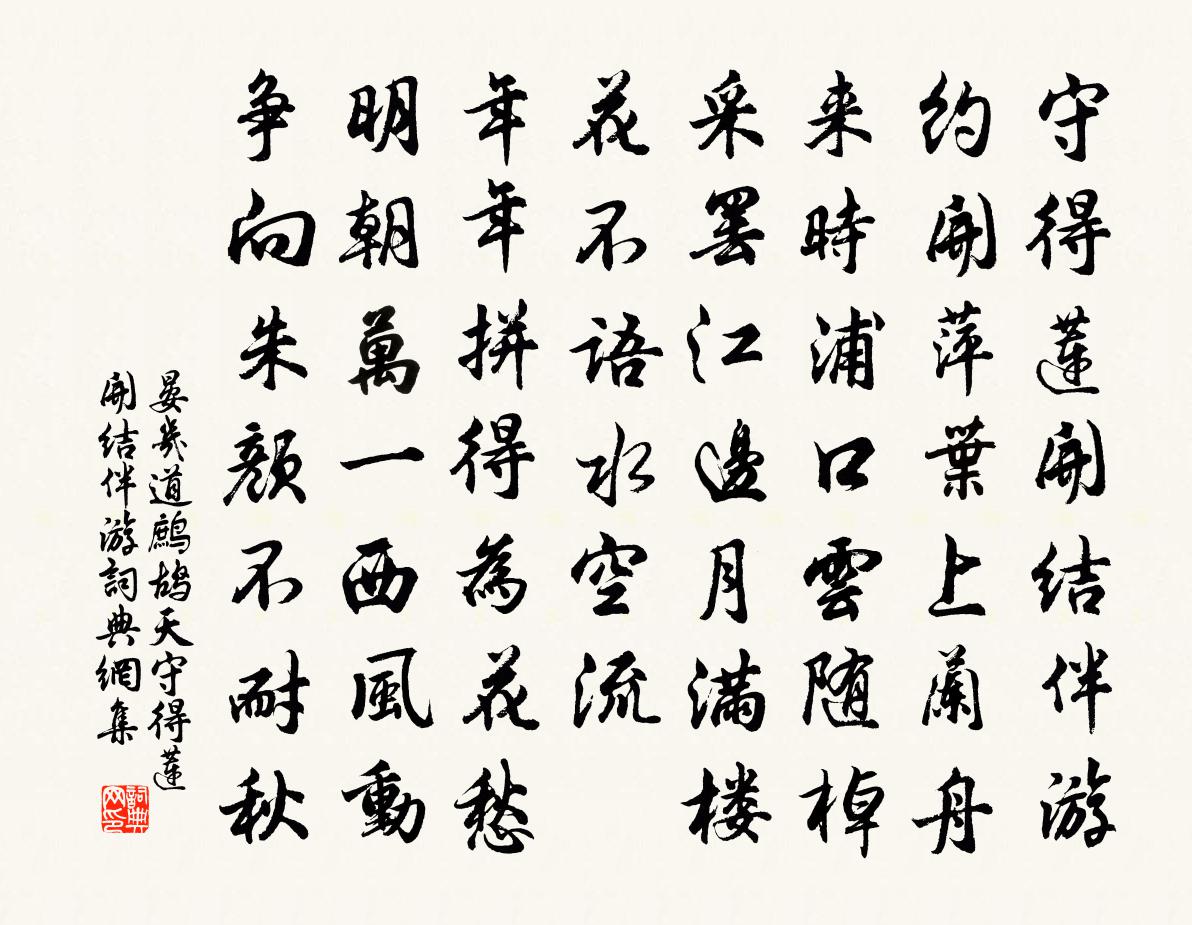 守得蓮開結伴游
約開萍葉上蘭舟
来時浦口雲随棹
采罢江邊月满楼
花不語水空流
年年拼得為花愁
明朝萬一西風動
争向朱颜不耐秋
晏幾道鷓鴣天守得蓮
開結伴游詞典網集
詞典
网印